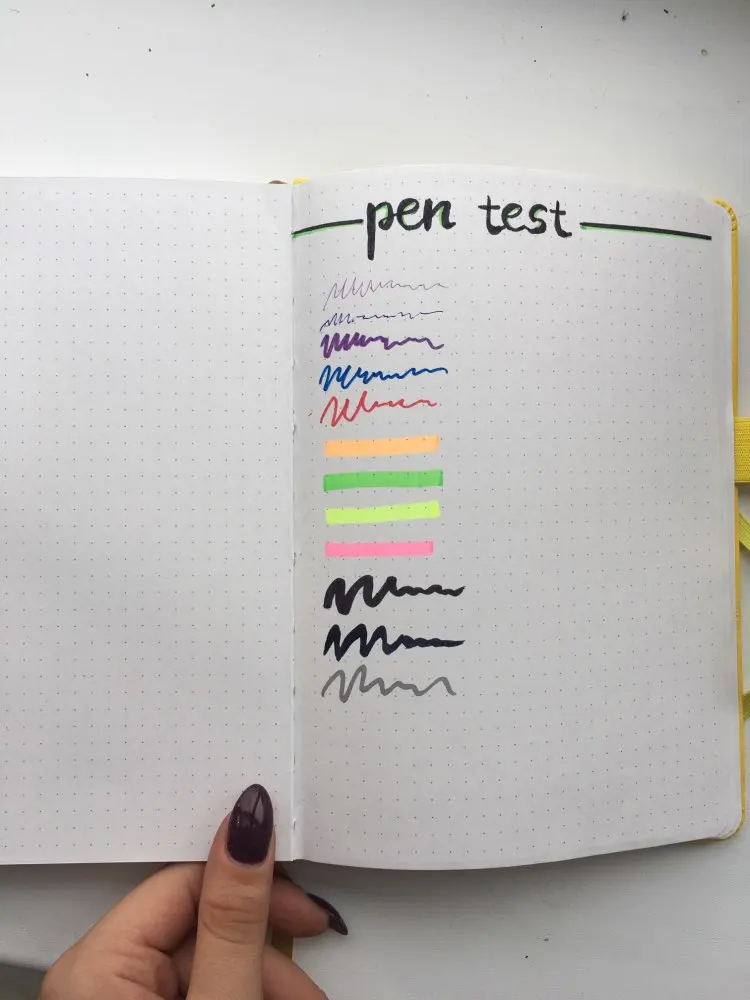 pen test